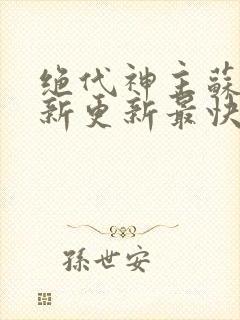 绝代神主蘇
新更新最快
孫世安